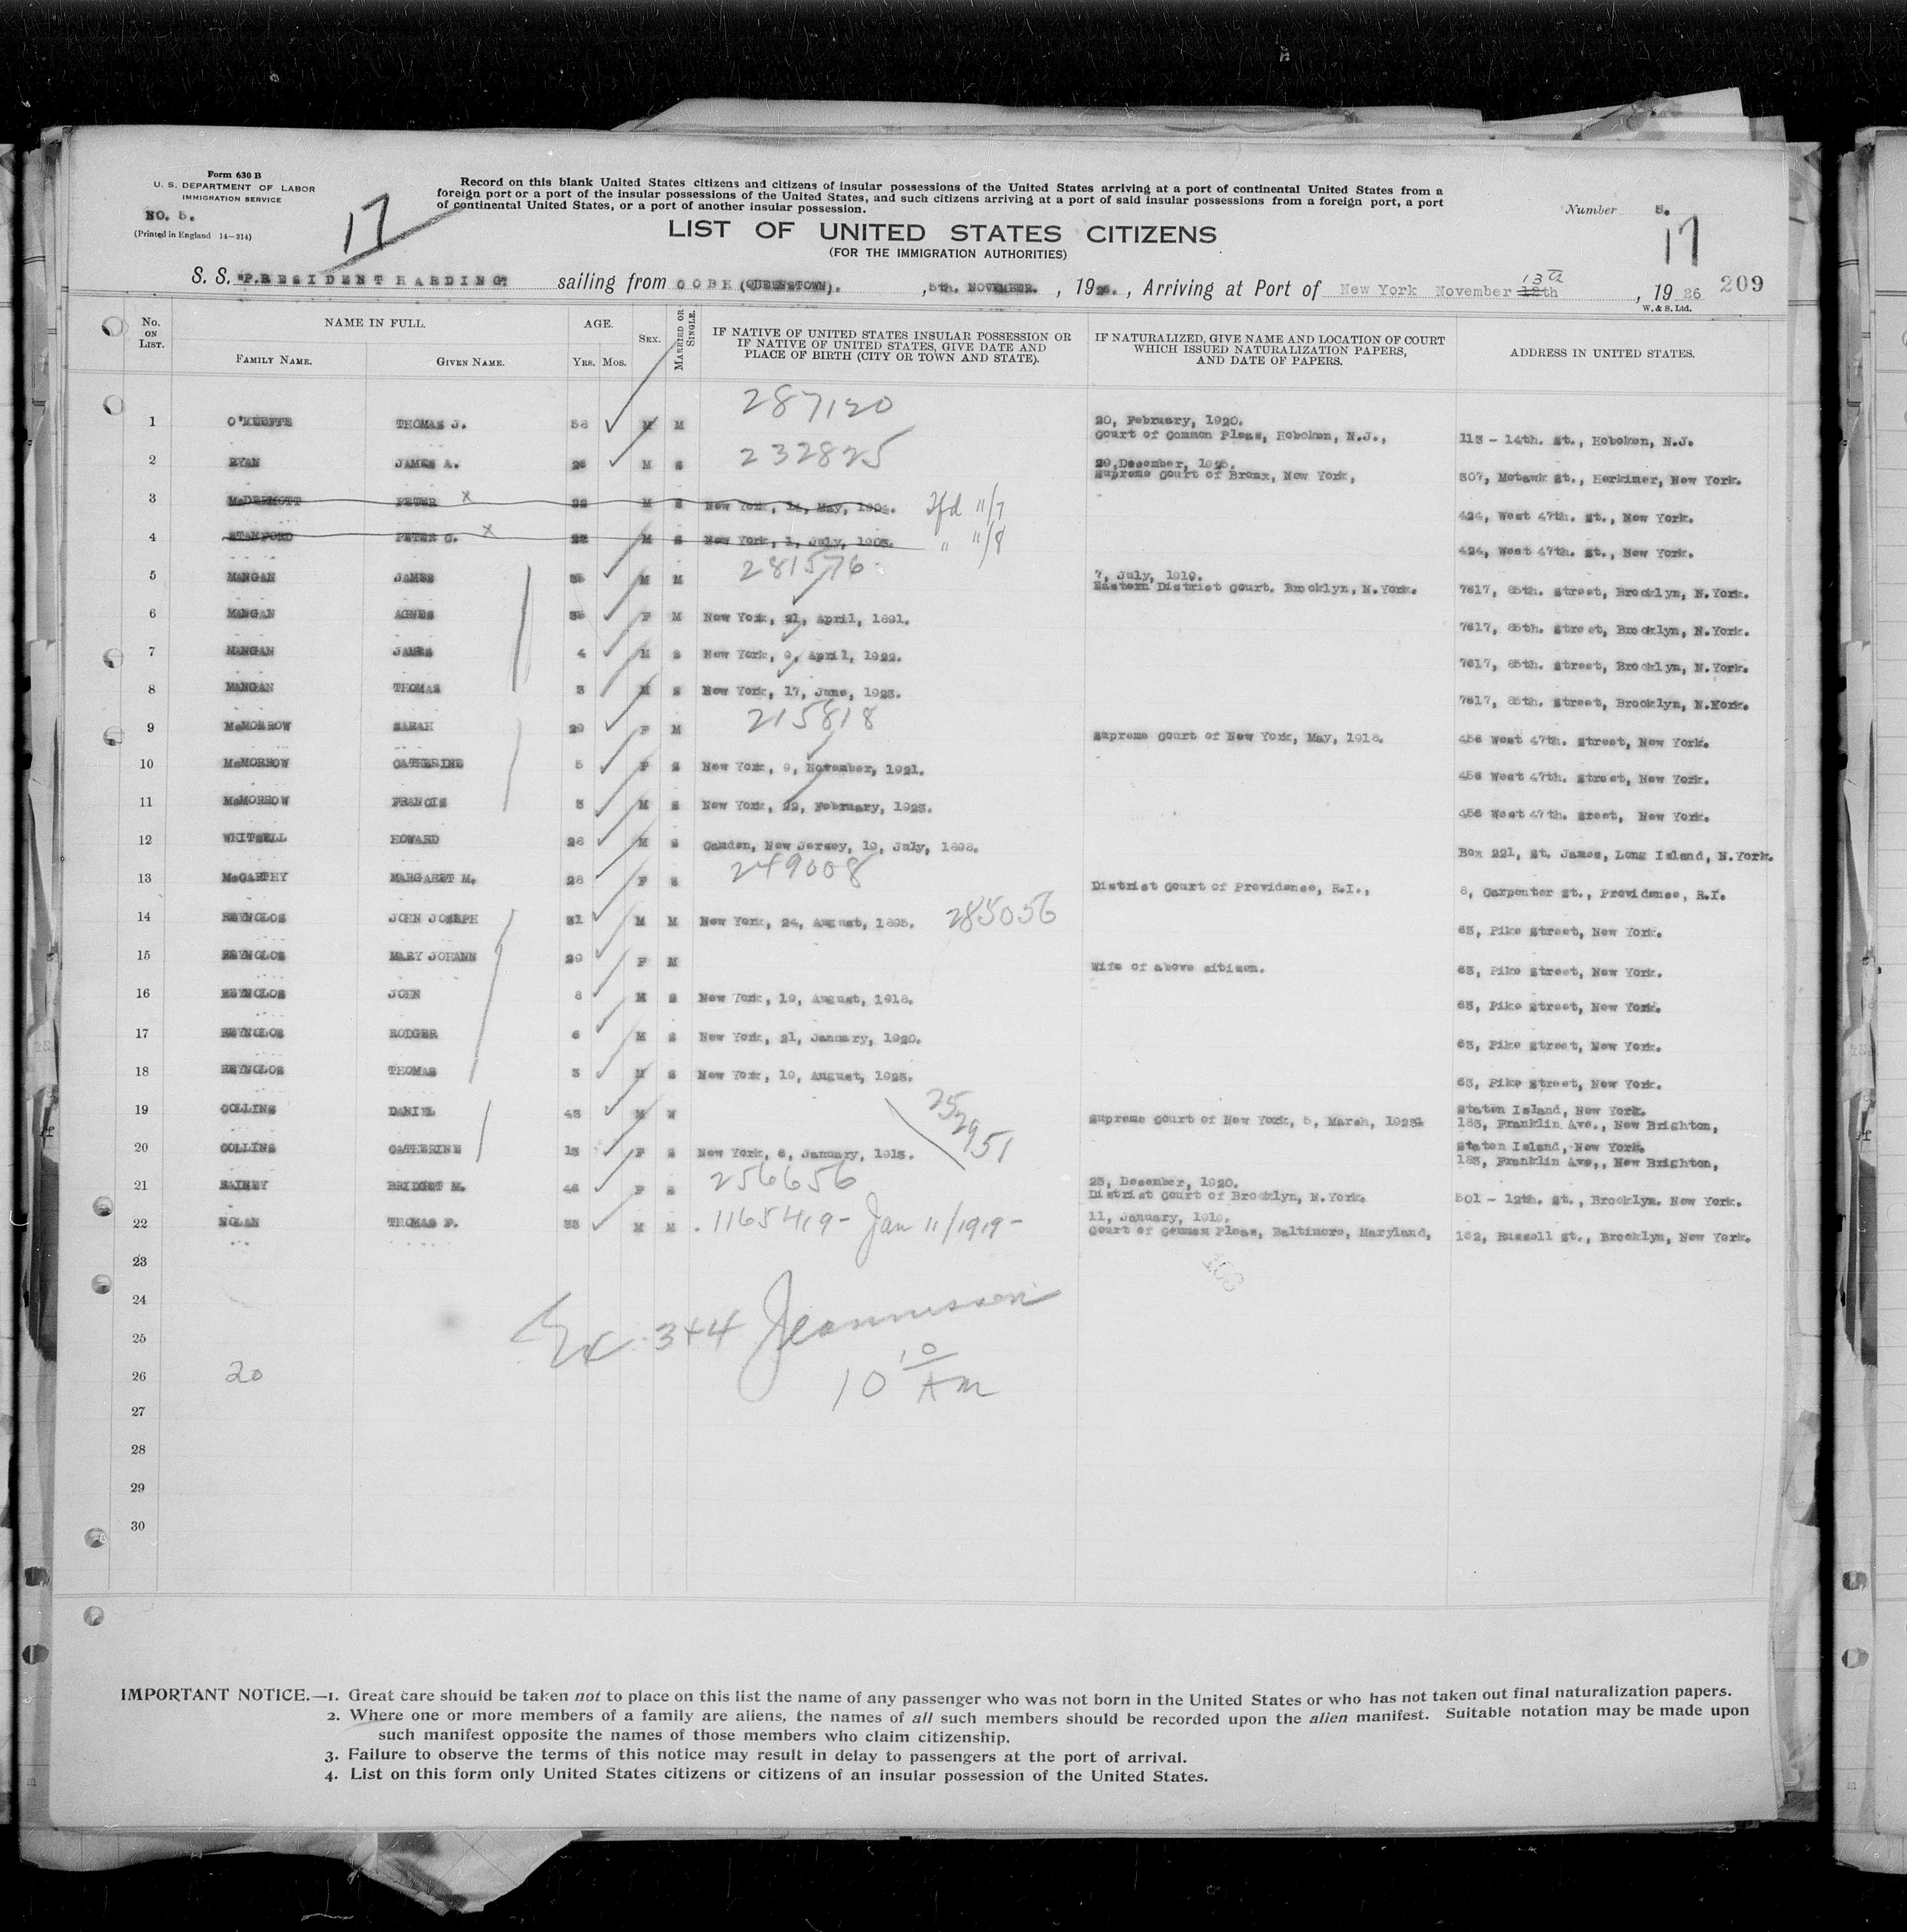 Form 630 B
U. S. DEPARTMENT OF LABOR
IMMIGRATION SERVICE
NO. 5.
(Printed in England 14—214)
17
Record on this blank United States citizens and citizens of insular possessions of the United States arriving at a port of continental United States from a
foreign port or a port of the insular possessions of the United States, and such citizens arriving at a port of said insular possessions from a foreign port, a port
of continental United States, or a port of another insular possession.
Number 5.
17
LIST OF UNITED STATES CITIZENS
(FOR THE IMMIGRATION AUTHORITIES)
S. S. "PRESIDENT HARDING" sailing from COBH (QUEENSTOWN). , 5th. NOVEMBER. , 1926. , Arriving at Port of New York November 13th , 19 26 209
W. & S. Ltd.
No. ON LIST. NAME IN FULL. AGE. SEX. MARRIED OR SINGLE. IF NATIVE OF UNITED STATES INSULAR POSSESSION OR IF NATIVE OF UNITED STATES, GIVE DATE AND PLACE OF BIRTH (CITY OR TOWN AND STATE). IF NATURALIZED, GIVE NAME AND LOCATION OF COURT WHICH ISSUED NATURALIZATION PAPERS, AND DATE OF PAPERS. ADDRESS IN UNITED STATES.
FAMILY NAME. GIVEN NAME. YRS. MOS.
287120
1 O'KEEFFE THOMAS J. M M 20, February, 1920. Court of Common Pleas, Hoboken, N.J., 113 - 14th. St., Hoboken, N.J.
232825
2 RYAN JAMES A. 26 M S 20, December, 1925. Supreme Court of Bronx, New York, 307, Mohawk St., Herkimer, New York.
3 McDERMOTT PETER X 22 M S New York, 14, May, 1904. Tfd 11/7 424, West 47th. St., New York.
4 STANFORD PETER C. X M S New York, 1, July, 1903. " 11/8 424, West 47th. St., New York.
281576
5 MANGAN JAMES 35 M M 7, July, 1919. Eastern District Court. Brooklyn, N.York. 7617, 85th. Street, Brooklyn, N.York.
6 MANGAN AGNES 35 F M New York, 21, April, 1891. 7617, 85th. Street, Brooklyn, N.York.
7 MANGAN JAMES 4 M S New York, 9, April, 1922. 7617, 85th. Street, Brooklyn, N.York.
8 MANGAN THOMAS 3 M S New York, 17, June, 1923. 7617, 85th. Street, Brooklyn, N.York.
215818
9 McMORROW SARAH 29 F M Supreme Court of New York, May, 1918. 456 West 47th. Street, New York.
10 McMORROW CATHERINE 5 F S New York, 9, November, 1921. 456 West 47th. Street, New York.
11 McMORROW FRANCIS 3 M S New York, 22, February, 1923. 456 West 47th. Sreet, New York.
12 WHITSELL HOWARD 28 M S Camden, New Jersey, 19, July, 1898. Box 221, St. James, Long Island, N.York.
249008
13 McCARTHY MARGARET M. 28 F S District Court of Providence, R.I., 8, Carpenter St., Providence, R.I.
14 REYNOLDS JOHN JOSEPH 31 M M New York, 24, August, 1895. 285056 63, Pike Street, New York.
15 REYNOLDS MARY JOHANN 29 F M Wife of above citizen. 63, Pike Street, New York.
16 REYNOLDS JOHN 8 M S New York, 19, August, 1918. 63, Pike Street, New York.
17 REYNOLDS RODGER 6 M S New York, 21, January, 1920. 63, Pike Street, New York.
18 REYNOLDS THOMAS 3 M S New York, 19, August, 1923. 63, Pike Street, New York.
252951
19 COLLINS DANIEL 43 M W Supreme Court of New York, 5, March, 1923 Staten Island, New York. 183, Franklin Ave., New Brighton,
20 COLLINS CATHERINE 13 F S New York, 6, January, 1913. Staten Island, New York. 183, Franklin Ave,, New Brighton,
256656
21 RAINEY BRIDGET M. 46 F S 23, December, 1920. District Court of Brooklyn, N.York. 501 - 12th. St., Brooklyn. New York.
22 NOLAN THOMAS F. 33 M M 1165419 - Jan 11/1919 - 11, January, 1919. Court of Common Pleas, Baltimore, Maryland, 162, Russell St., Brooklyn, New York.
23
24
25
26 20
27
28
29
30
Ex. 344
10 10 AM
IMPORTANT NOTICE.—1. Great care should be taken not to place on this list the name of any passenger who was not born in the United States or who has not taken out final naturalization papers.
2. Where one or more members of a family are aliens, the names of all such members should be recorded upon the alien manifest. Suitable notation may be made upon
such manifest opposite the names of those members who claim citizenship.
3. Failure to observe the terms of this notice may result in delay to passengers at the port of arrival.
4. List on this form only United States citizens or citizens of an insular possession of the United States.